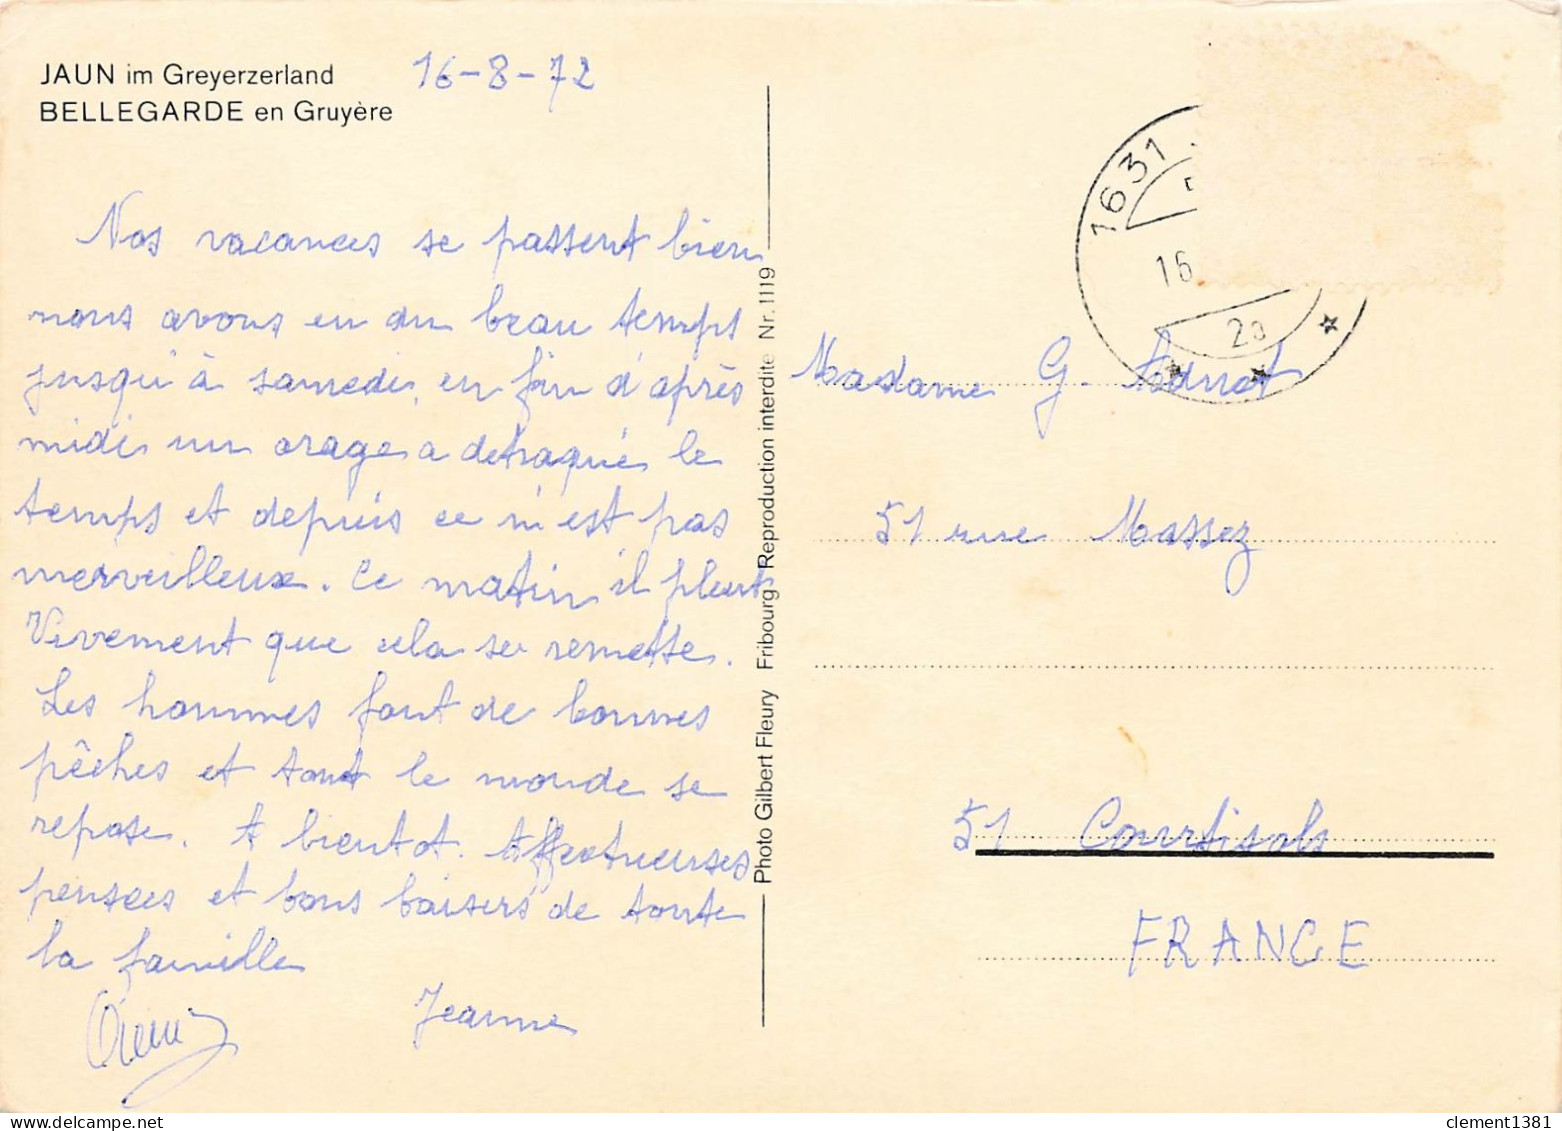 JAUN im Greyerzerland
BELLEGARDE en Gruyère
16-8-72
Nos vacances se passent bien
nous avons eu du beau temps
jusqu'à samedi, en fin d'après
midi un orage a detraqué le
temps et depuis ce n'est pas
merveilleux. Ce matin il pleut
Vivement que cela se remette.
Les hommes font de bonnes
pêches et tout le monde se
repose. A bientot. Affectueuses
pensees et bons baisers de toute
la famille
Jeanne
Photo Gilbert Fleury Fribourg Reproduction interdite Nr. 1119
1631
16
2a
Madame G.
51 rue Massez
51 Courtisols
FRANCE
clement1381